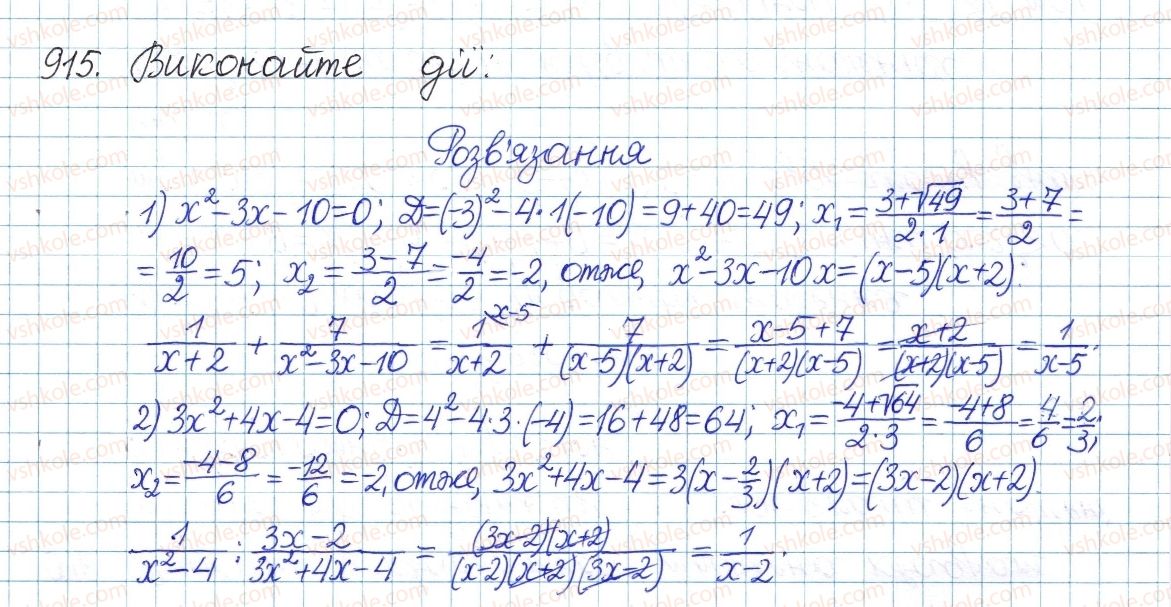 915. Виконайте дії:
Розв'язання
1) x² - 3x - 10 = 0; D = (-3)² - 4·1(-10) = 9 + 40 = 49; x₁ = (3+√49)/(2·1) = (3+7)/2 =
= 10/2 = 5; x₂ = (3-7)/2 = -4/2 = -2, отже, x² - 3x - 10x = (x-5)(x+2):
1/(x+2) + 7/(x²-3x-10) = 1^(x-5)/(x+2) + 7/((x-5)(x+2)) = (x-5+7)/((x+2)(x-5)) = (x+2)/((x+2)(x-5)) = 1/(x-5).
2) 3x² + 4x - 4 = 0; D = 4² - 4·3·(-4) = 16 + 48 = 64; x₁ = (-4+√64)/(2·3) = (-4+8)/6 = 4/6 = 2/3;
x₂ = (-4-8)/6 = -12/6 = -2, отже, 3x² + 4x - 4 = 3(x - 2/3)(x+2) = (3x-2)(x+2).
1/(x²-4) : (3x-2)/(3x²+4x-4) = ((3x-2)(x+2))/((x-2)(x+2)(3x-2)) = 1/(x-2).